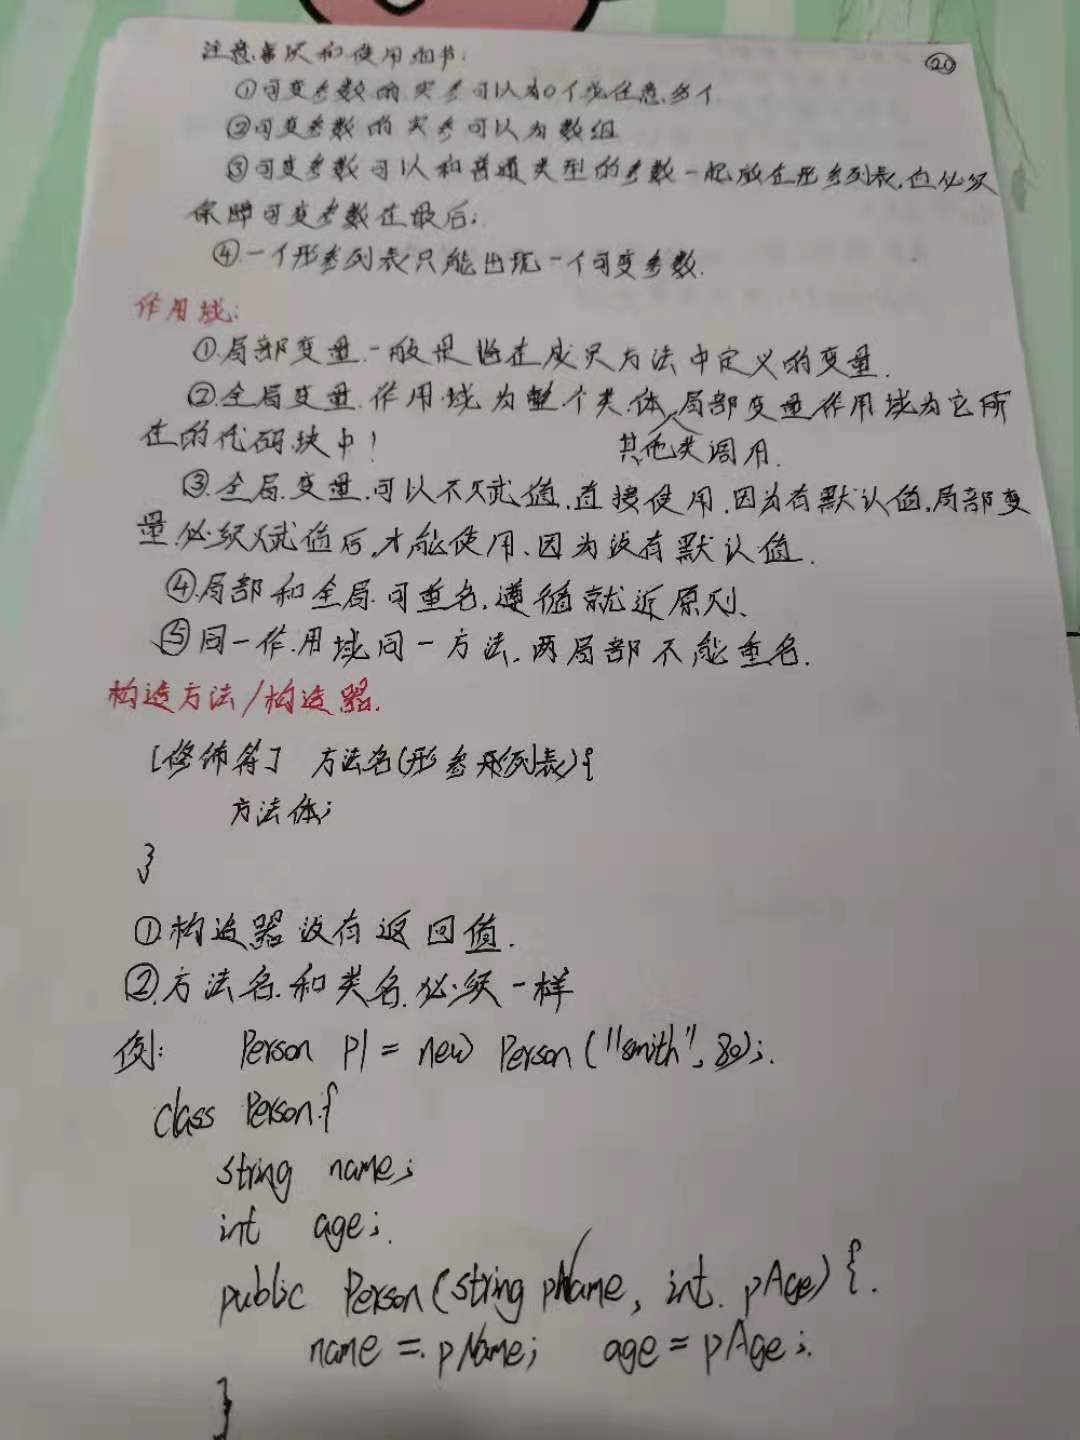 注意事项和使用细节:
⑳
①可变参数的实参可以为0个或任意多个
②可变参数的实参可以为数组
③可变参数可以和普通类型的参数一起放在形参列表,但必须
保障可变参数在最后;
④一个形参列表只能出现一个可变参数.
作用域:
①局部变量一般是指在成员方法中定义的变量.
②全局变量作用域为整个类体,局部变量作用域为它所
在的代码块中!
其他类调用.
③全局变量可以不赋值,直接使用,因为有默认值,局部变
量必须赋值后,才能使用、因为没有默认值.
④局部和全局可重名,遵循就近原则、
⑤同一作用域同一方法,两局部不能重名.
构造方法/构造器.
[修饰符] 方法名(形参列表){
方法体;
}
①构造器没有返回值.
②方法名和类名必须一样
例: Person p1 = new Person("smith", 80);
class Person{
string name;
int age;
public Person(string pName, int pAge){
name = pName; age = pAge;
}